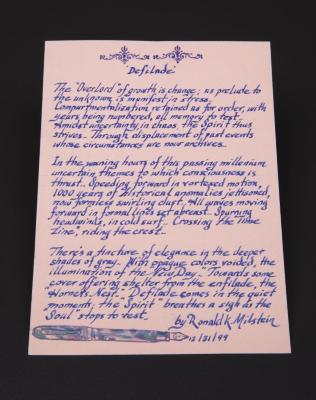 "Defilade"
The "Overlord" of growth is change; as prelude to
the unknown is manifest in stress.
Compartmentalization retained as for order, with
years being numbered, all memory to test.
Amidst uncertainty in chaos, the Spirit thus
strives. Through displacement of past events
whose circumstances are now archives.
In the waning hours of this passing millenium
uncertain themes to which consciousness is
thrust. Speeding forward in vortexed motion,
1000 years of historical anomalies victimised,
now formless swirling dust. All waves moving
forward in formal lines set abreast. Spurning
headwinds, in cold surf. Crossing the "Time
Line", riding the crest.
There's a fracture of elegance in the deeper
shades of gray. With opaque colors voided, the
illumination of the "New Day". Towards some
cover offering shelter from the enfilade, the
"Hornets Nest." Defilade comes in the quiet
moments; the "Spirit" breathes a sigh as the
"Soul" stops to rest.
by Ronald K Milstein
12/31/99